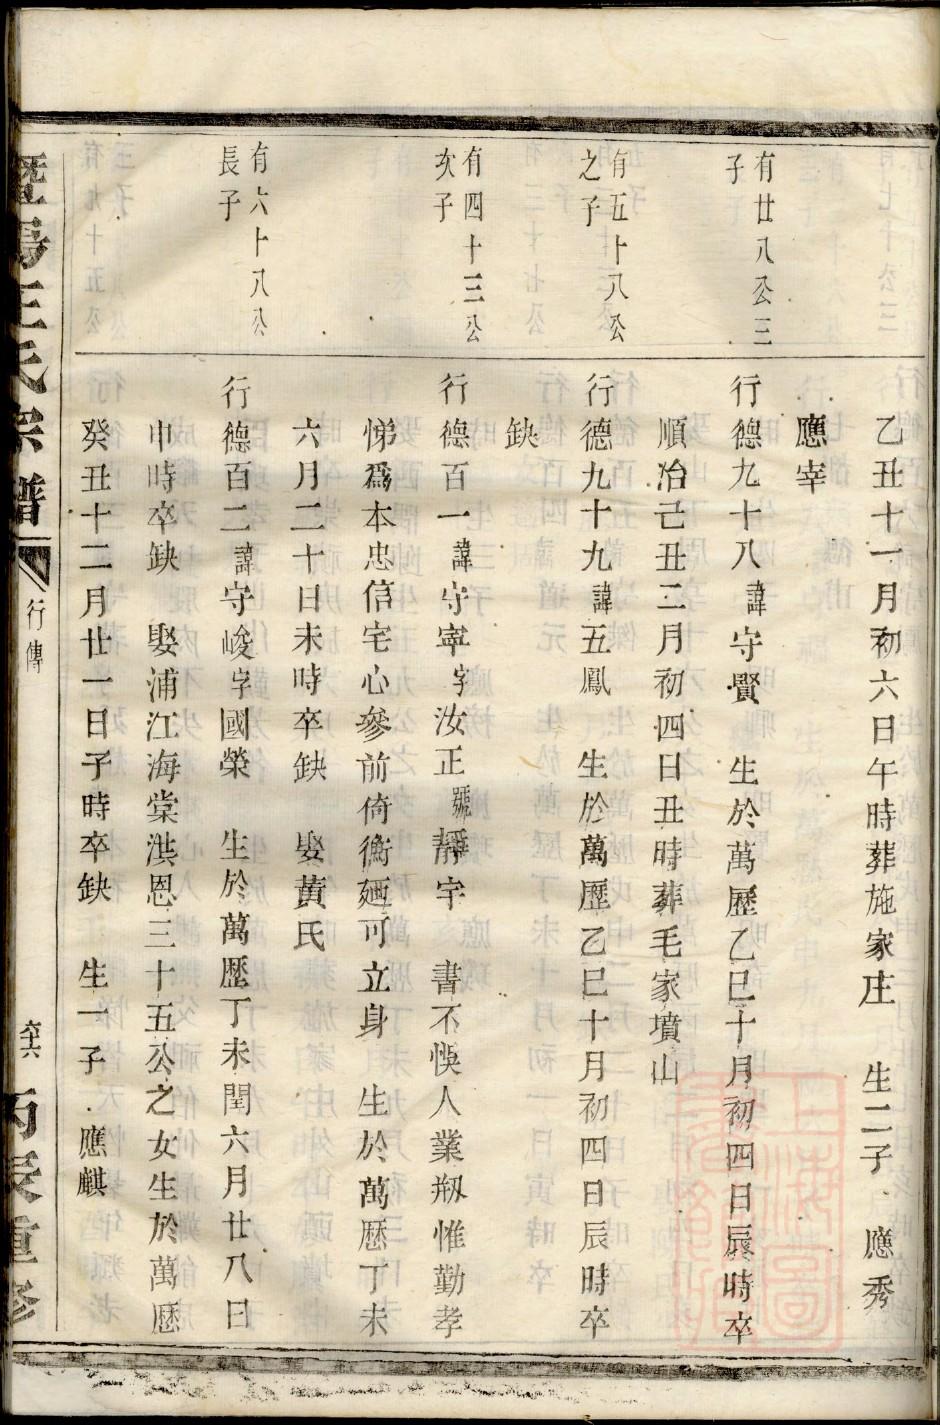 乙丑十一月初六日午時葬施家庄　生二子　應秀
應宰
有廿八公三
子
行德九十八諱守賢　生於萬歷乙巳十月初四日辰時卒
順治己丑二月初四日丑時葬毛家墳山
有五十八公
之子
行德九十九諱五鳳　生於萬歷乙巳十月初四日辰時卒
缺
有四十三公
次子
行德百一諱守寧字汝正號靜宇　書不悞人業剏惟勤孝
悌爲本忠信宅心參前倚衡廼可立身　生於萬厯丁未
六月二十日未時卒缺　娶黃氏
有六十八公
長子
行德百二諱守峻字國榮　生於萬歷丁未閏六月廿八日
申時卒缺　娶浦江海棠洪恩三十五公之女生於萬厯
癸丑十二月廿一日子時卒缺　生一子　應麒
暨陽王氏宗譜
行傳
丙辰重修